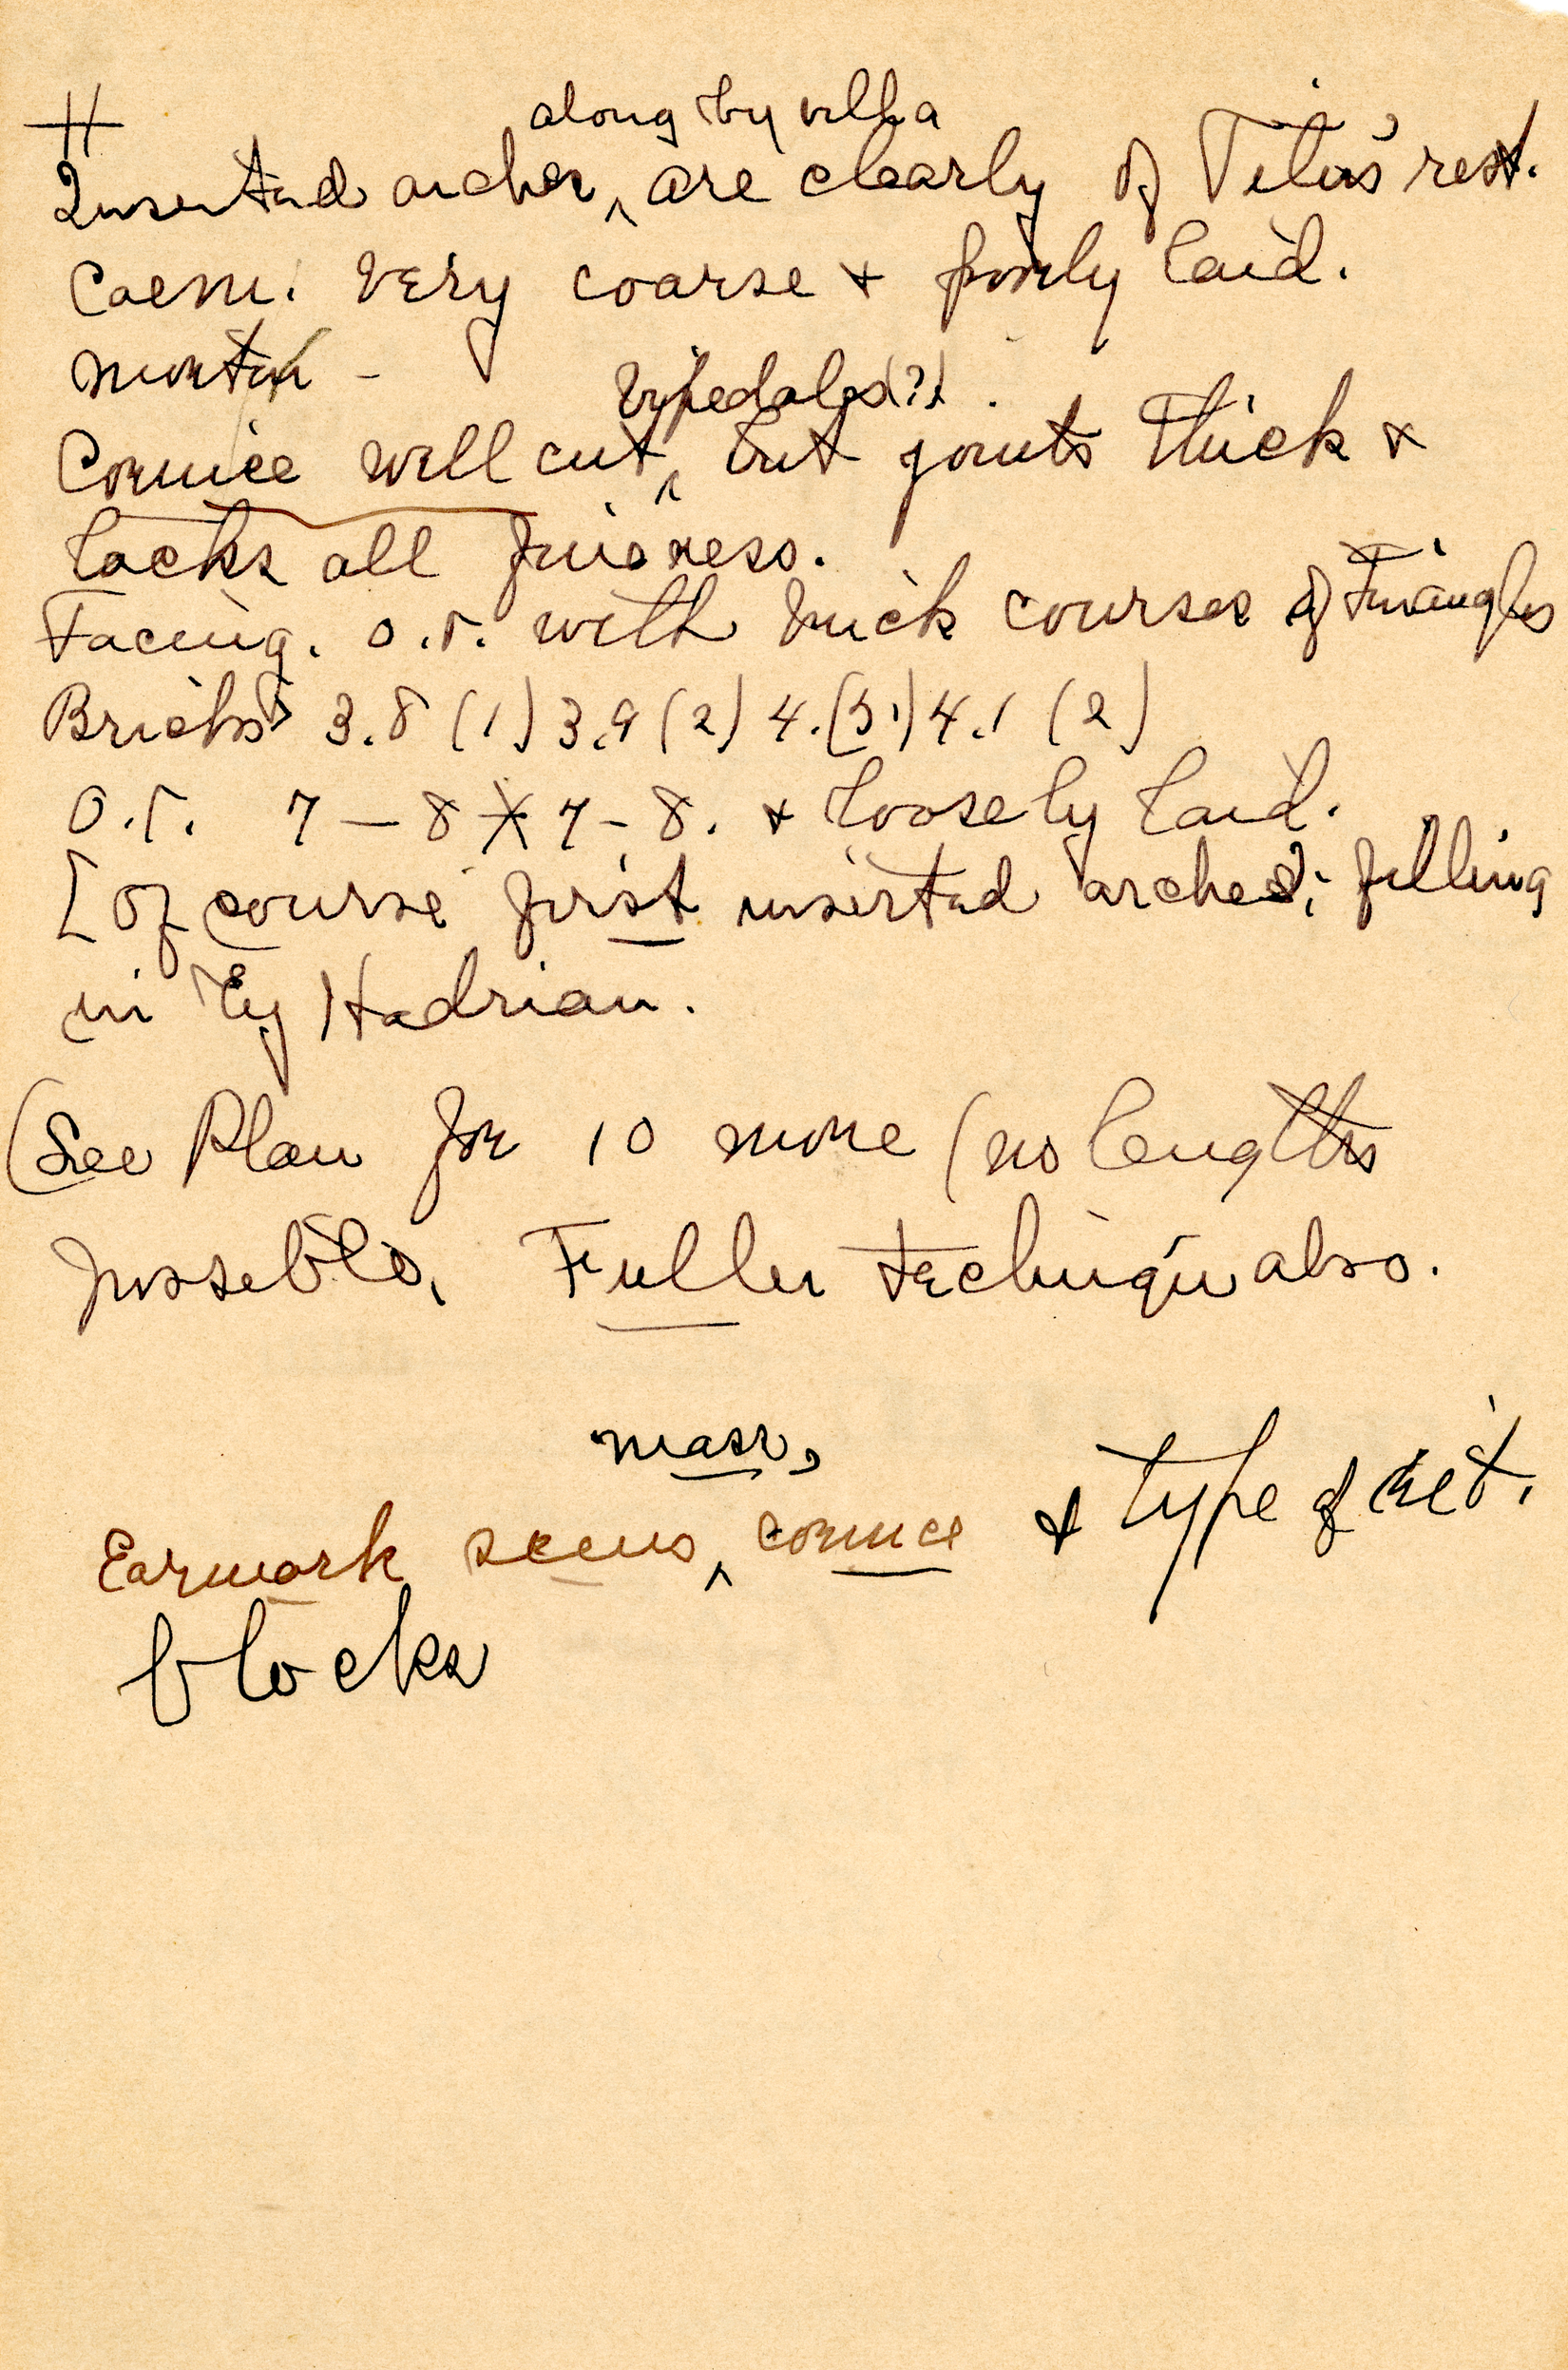 #
along by villa
Inserted arches ^ are clearly of Titus' rest.
Caem. very coarse + poorly laid.
mortar -
bipedales(?)
Cornice well cut ^, but joints thick +
lacks all fineness.
Facing. o.r. with brick courses of triangles
Bricks 3.8 (1) 3.9 (2) 4. (5) 4.1 (2)
O.r. 7 - 8 X 7 - 8. + loosely laid.
[Of course first inserted arches; filling
in by Hadrian.
(See Plan for 10 more (no lengths
possible. Fuller technique also.
mass,
Earmark seems ^ cornice + type of ret.
blocks